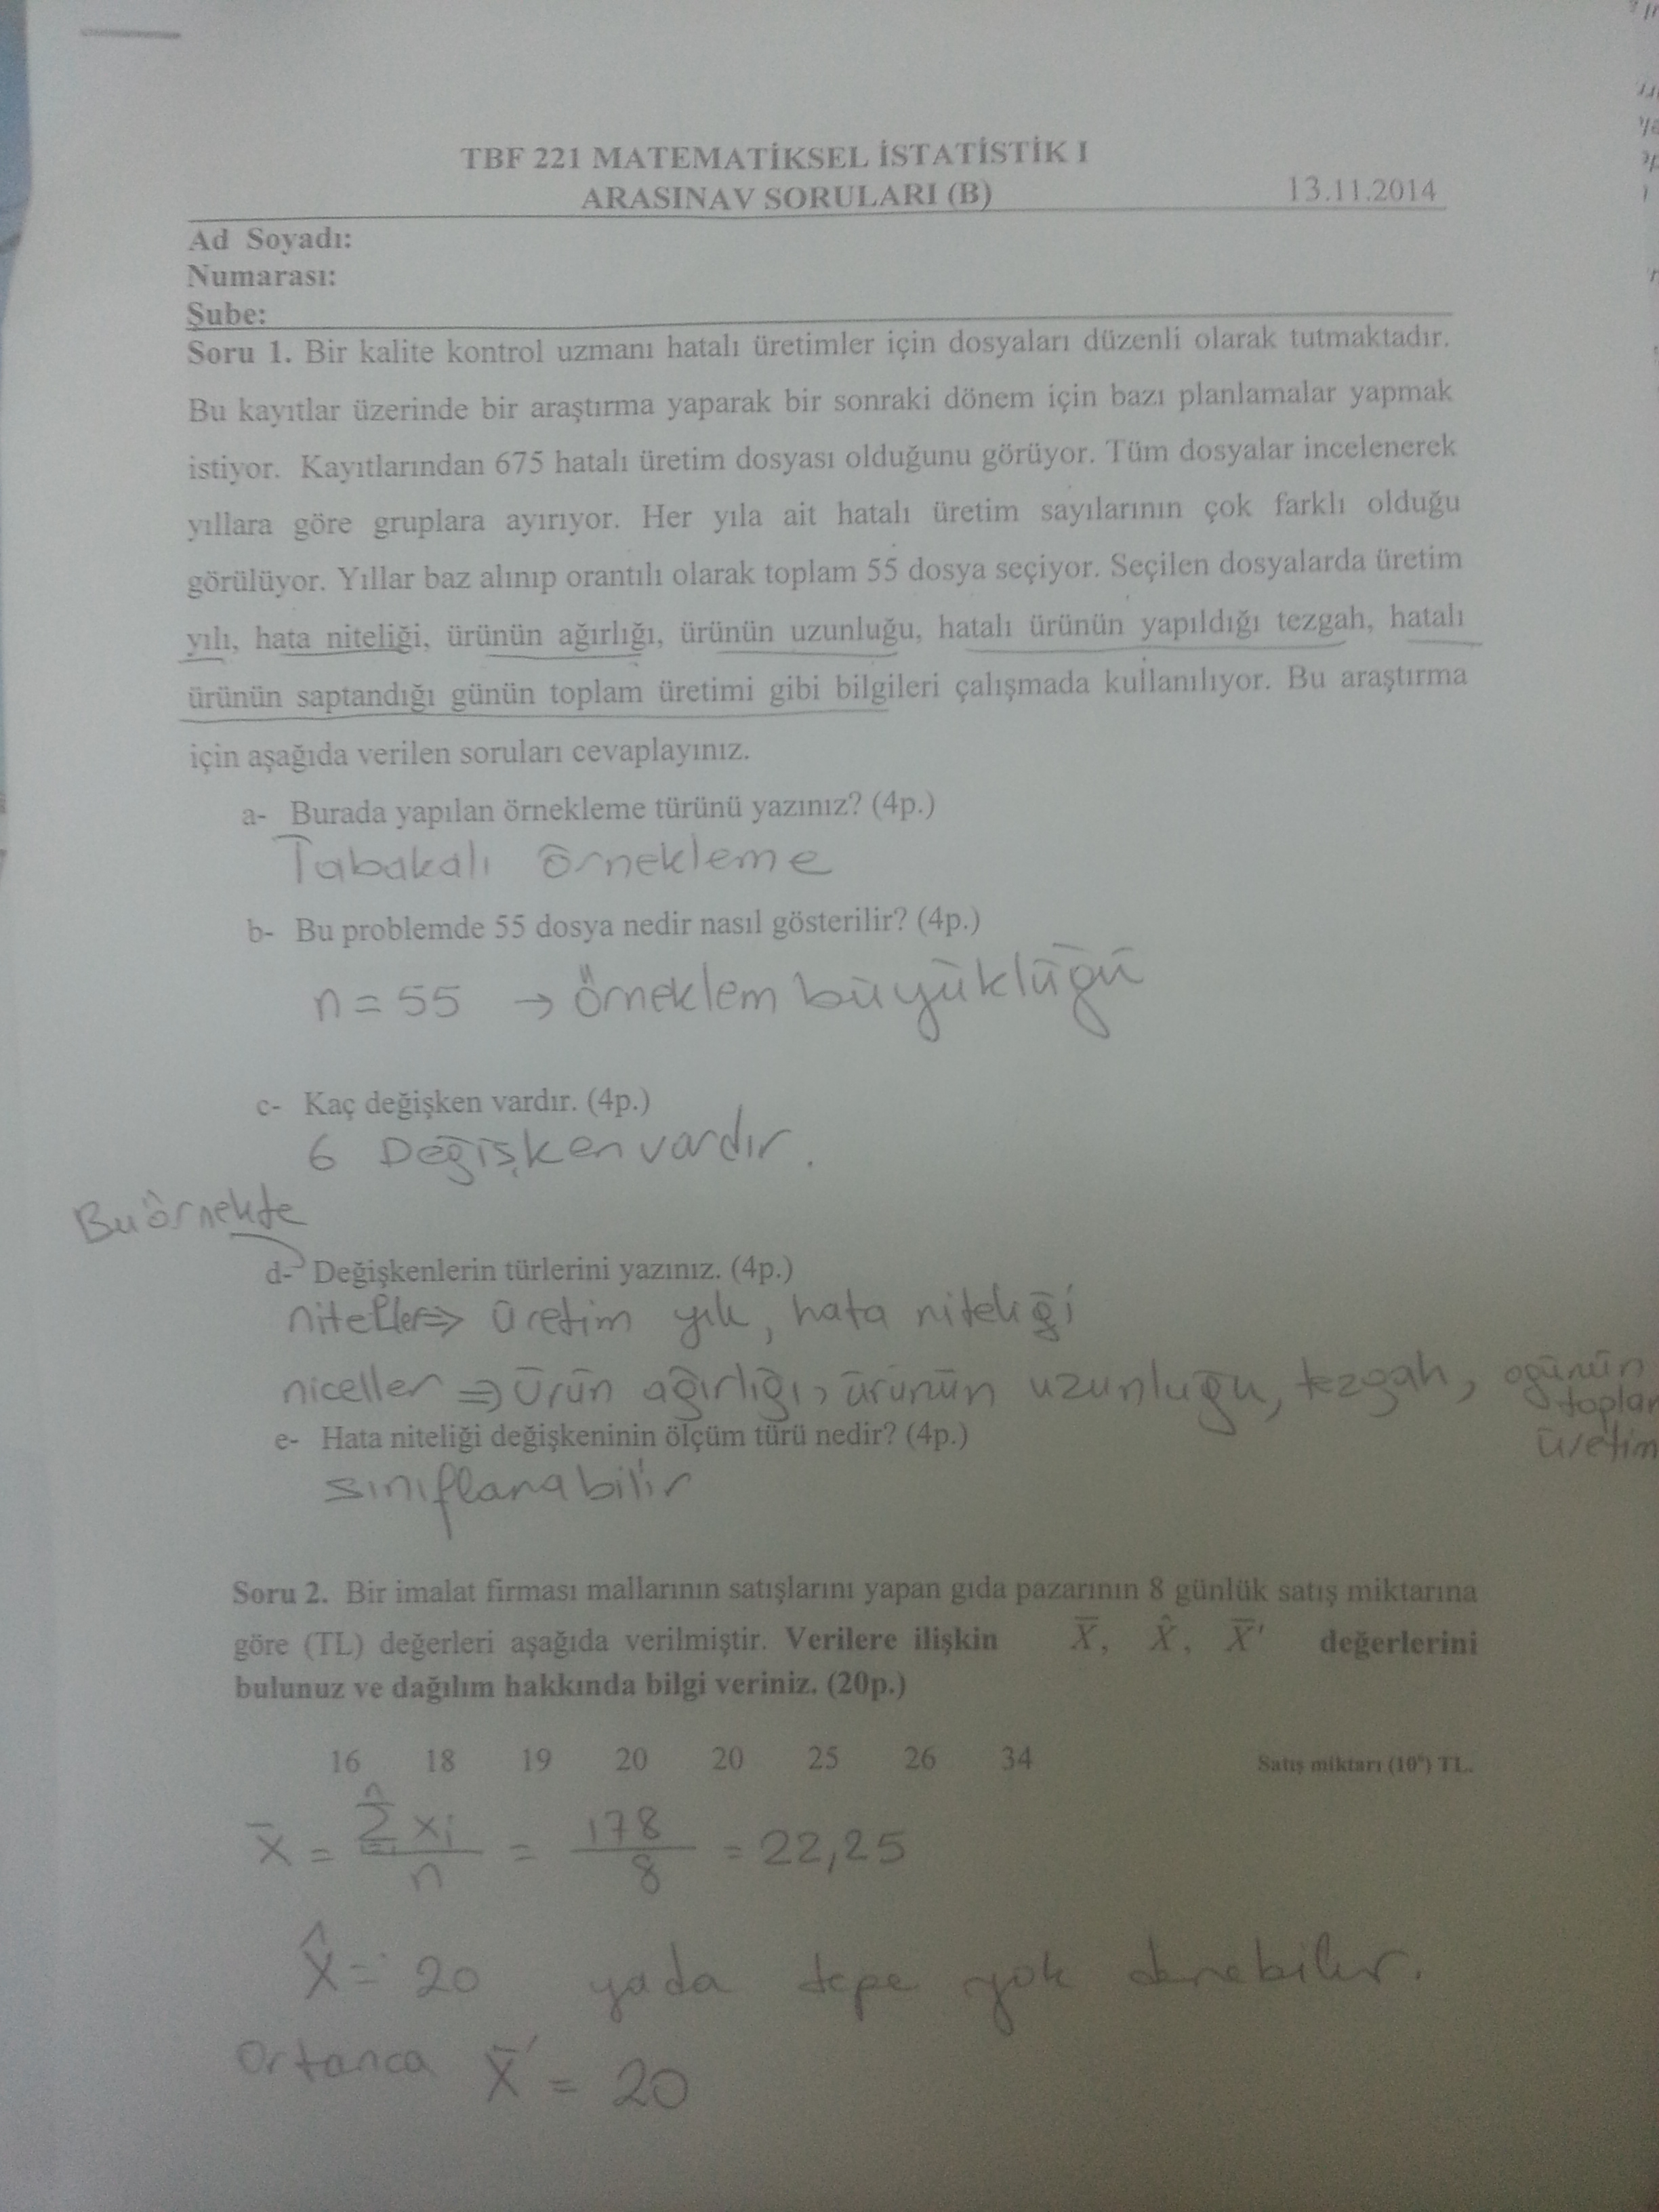 TBF 221 MATEMATİKSEL İSTATİSTİK I
ARASINAV SORULARI (B) 13.11.2014
Ad Soyadı:
Numarası:
Şube:
Soru 1. Bir kalite kontrol uzmanı hatalı üretimler için dosyaları düzenli olarak tutmaktadır.
Bu kayıtlar üzerinde bir araştırma yaparak bir sonraki dönem için bazı planlamalar yapmak
istiyor. Kayıtlarından 675 hatalı üretim dosyası olduğunu görüyor. Tüm dosyalar incelenerek
yıllara göre gruplara ayırıyor. Her yıla ait hatalı üretim sayılarının çok farklı olduğu
görülüyor. Yıllar baz alınıp orantılı olarak toplam 55 dosya seçiyor. Seçilen dosyalarda üretim
yılı, hata niteliği, ürünün ağırlığı, ürünün uzunluğu, hatalı ürünün yapıldığı tezgah, hatalı
ürünün saptandığı günün toplam üretimi gibi bilgileri çalışmada kullanılıyor. Bu araştırma
için aşağıda verilen soruları cevaplayınız.
a- Burada yapılan örnekleme türünü yazınız? (4p.)
Tabakalı örnekleme
b- Bu problemde 55 dosya nedir nasıl gösterilir? (4p.)
n = 55 → Örneklem büyüklüğü
c- Kaç değişken vardır. (4p.)
6 Değişken vardır.
Bu örnekte
d- Değişkenlerin türlerini yazınız. (4p.)
niteller ⇒ üretim yılı, hata niteliği
niceller ⇒ ürün ağırlığı, ürünün uzunluğu, tezgah, o günün
toplam
üretim
e- Hata niteliği değişkeninin ölçüm türü nedir? (4p.)
sınıflanabilir
Soru 2. Bir imalat firması mallarının satışlarını yapan gıda pazarının 8 günlük satış miktarına
göre (TL) değerleri aşağıda verilmiştir. Verilere ilişkin X̄, X̂, X̄' değerlerini
bulunuz ve dağılım hakkında bilgi veriniz. (20p.)
16 18 19 20 20 25 26 34 Satış miktarı (10⁶) TL.
x̄ = Σxi / n = 178 / 8 = 22,25
X̂ = 20 yada tepe yok denebilir.
Ortanca X̄' = 20